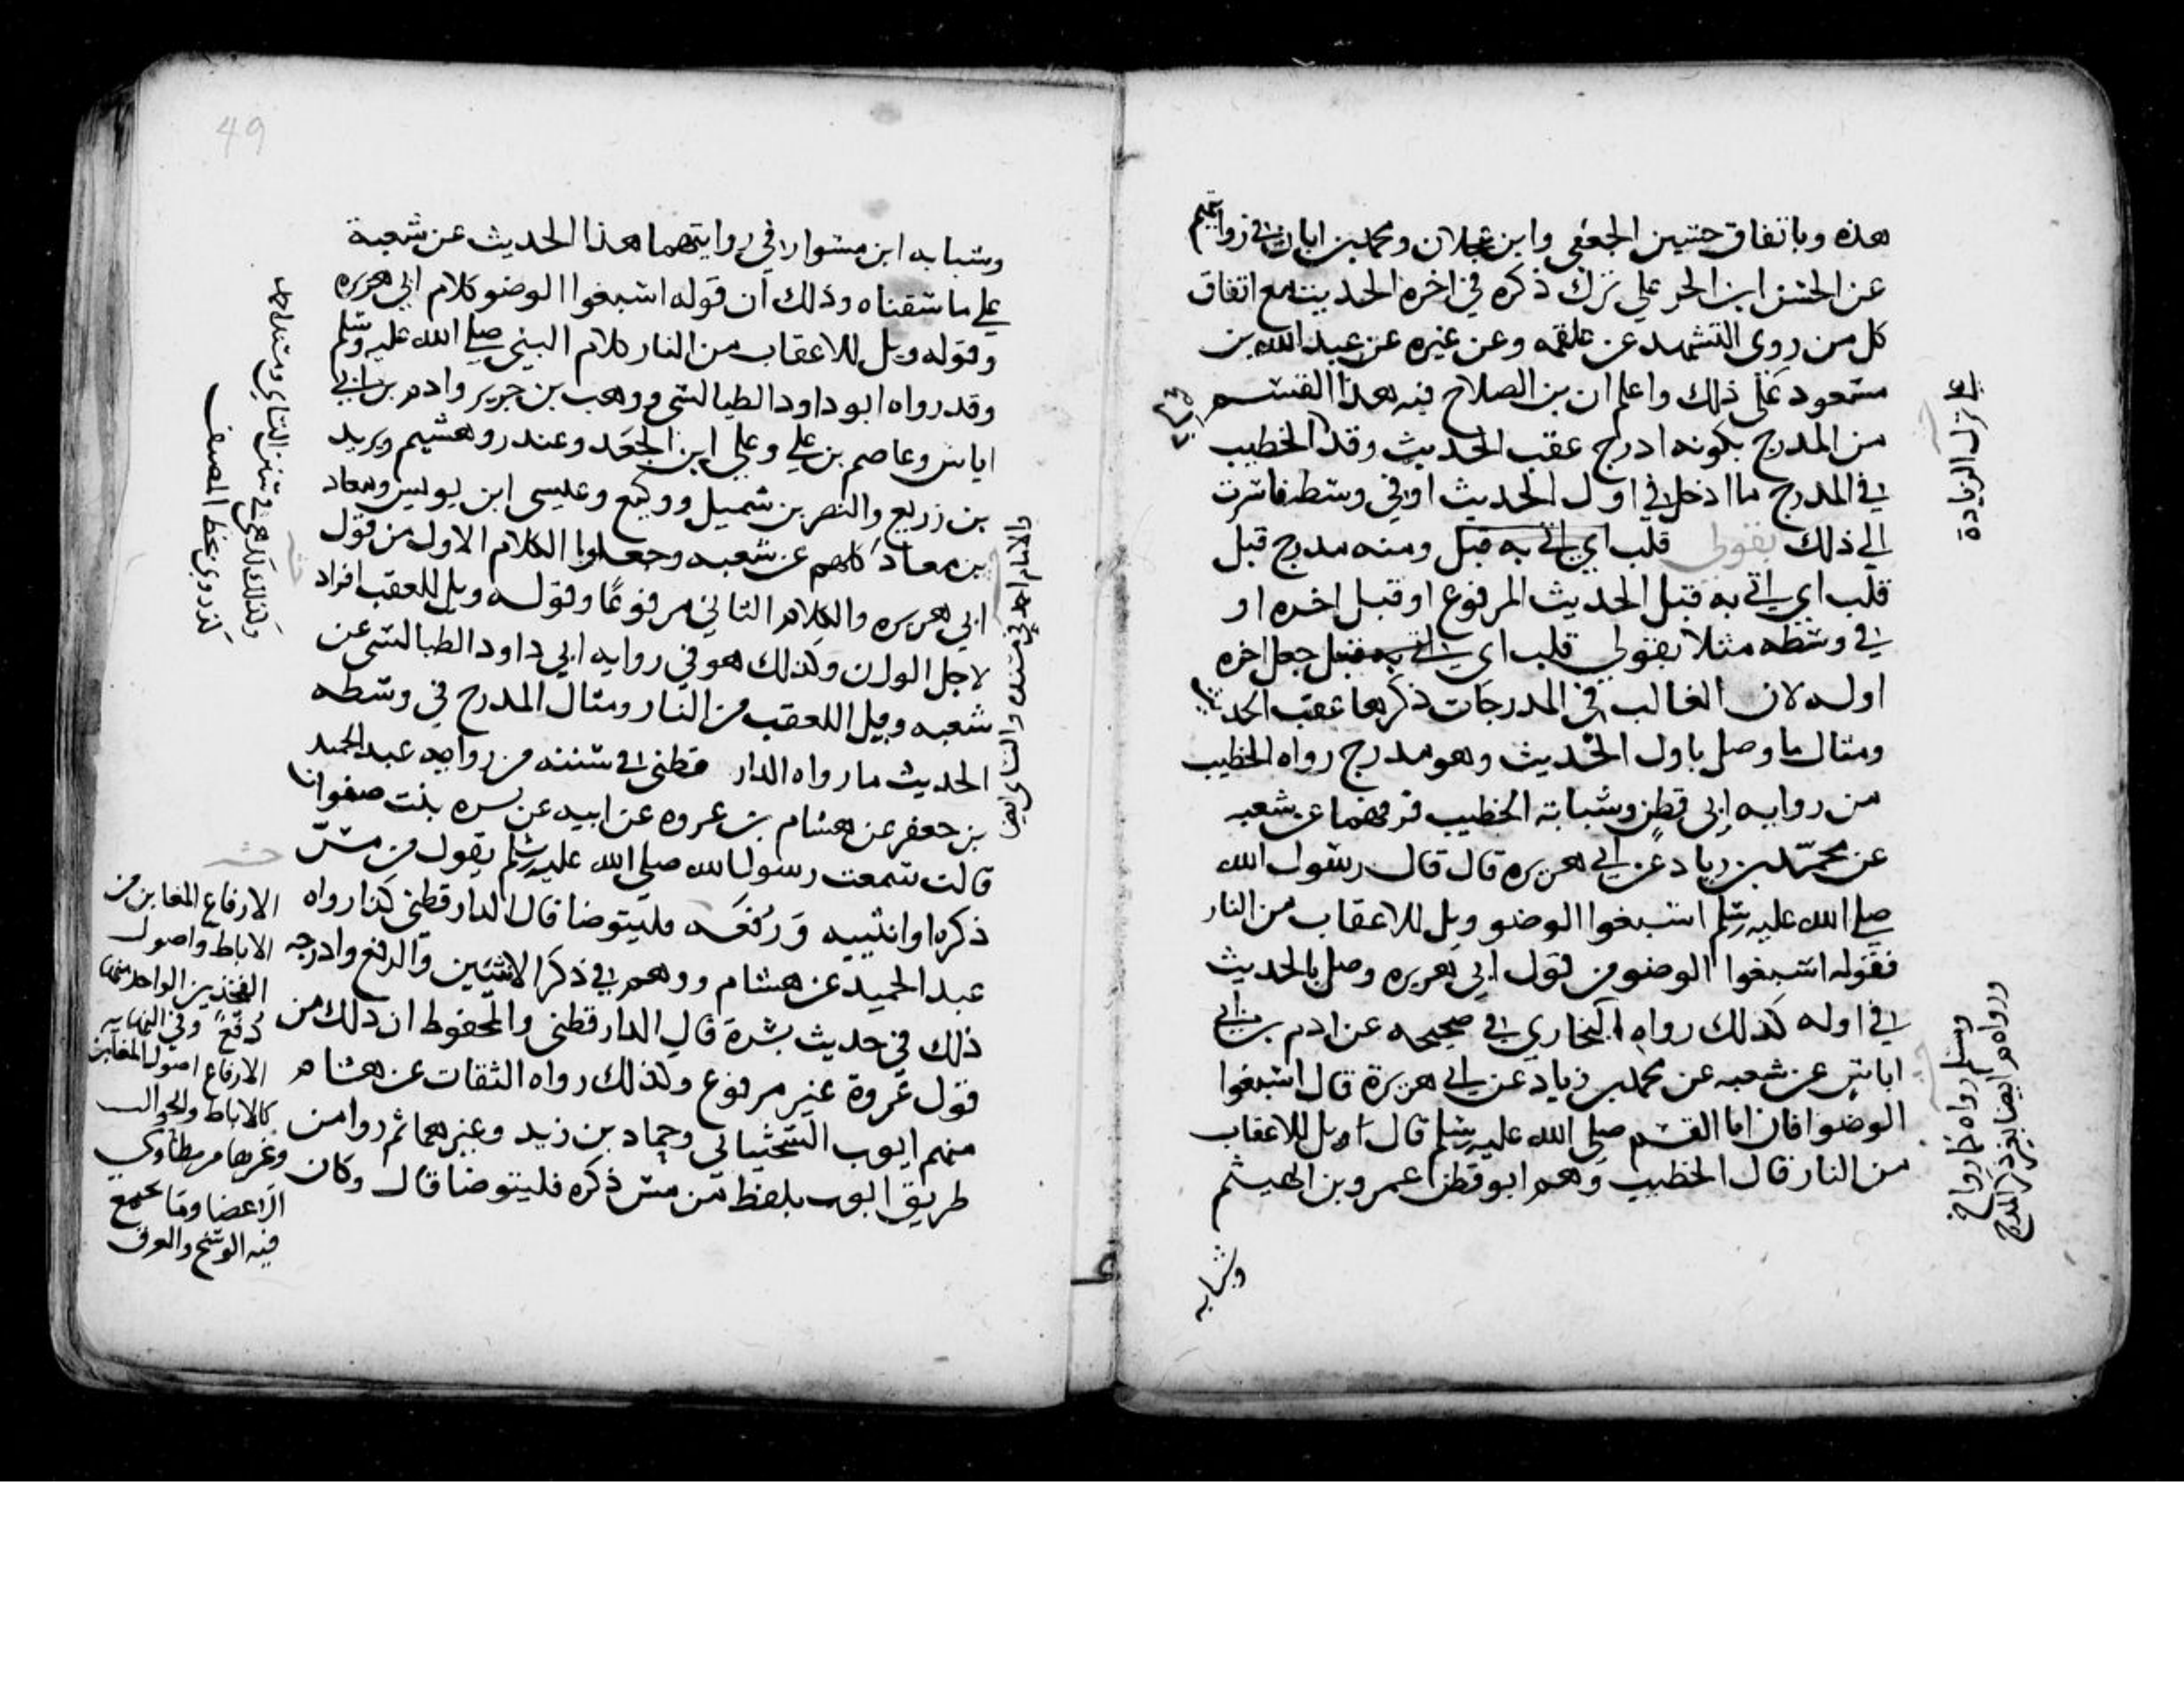 هذه وباتفاق حسين الجعفي وابن عجلان ومحمد بن ابان في روايتهم
عن الحسن ابن الحر علي ترك ذكره في اخره الحديث مع اتفاق
كل من روي التشهد عن علقمه وعن غيره عن عبد الله بن
مسعود علي ذلك واعلم ان بن الصلاح قيد هذا القسم
من المدرج بكونه ادرج عقب الحديث وقد الخطيب
في المدرج ما ادخل في اول الحديث او في وسطه فاشرت
الي ذلك بقولي قلب اي اتي به قبل ومنه مدرج قبل
قلب اي اتي به قبل الحديث المرفوع او قبل اخره او
في وسطه مثلا بقولي قلب اي اتي به قبل جعل اخره
اوله لان الغالب في المدرجات ذكرها عقب الحديث
ومثال ما وصل باول الحديث وهو مدرج رواه الخطيب
من روايه ابي قطن وشبابة الخطيب فرقهما عن شعبه
عن محمد بن زياد عن ابي هريرة قال قال رسول الله
صلي الله عليه وسلم اسبغوا الوضو ويل للاعقاب من النار
فقوله اسبغوا الوضو من قول ابي هريره وصل بالحديث
في اوله كذلك رواه البخاري في صحيحه عن ادم بن ابي
اياس عن شعبه عن محمد بن زياد عن ابي هريرة قال اسبغوا
الوضوا فان ابا القسم صلي الله عليه وسلم قال ويل للاعقاب
من النار قال الخطيب وهم ابو قطن عمرو بن الهيثم
وشبابه
علي ترك الزيادة
49
وشبابه ابن سوار في روايتهما هذا الحديث عن شعبة
علي ما سقناه وذلك ان قوله اسبغوا الوضو كلام ابي هريره
وقوله ويل للاعقاب من النار كلام النبي صلي الله عليه وسلم
وقد رواه ابو داود الطيالسي ووهب بن جرير وادم بن ابي
اياس وعاصم بن علي وعلي ابن الجعد وغندر وهشيم ويزيد
بن زريع والنصر بن شميل ووكيع وعيسى ابن يونس ومعاد
بن معاد كلهم عن شعبه وجعلوا الكلام الاول من قول
ابي هريره والكلام الثاني مرفوعًا وقوله ويل للعقب افراد
لاجل الوزن وكذلك هو في روايه ابي داود الطيالسي عن
شعبه ويل للعقب من النار ومثال المدرج في وسطه
الحديث ما رواه الدار قطني في سننه من روايه عبد الحميد
بن جعفر عن هشام بن عروه عن ابيه عن بسره بنت صفوان
قالت سمعت رسول الله صلي الله عليه وسلم يقول من مس
ذكره او انثييه ورفغه فليتوضا قال الدارقطني كذا رواه
عبد الحميد عن هشام ووهم في ذكر الانثيين والرفع وادرجه
ذلك في حديث بسرة قال الدارقطني والمحفوظ ان ذلك من
قول عروة غير مرفوع وكذلك رواه الثقات عن هشام
منهم ايوب السختياني وحماد بن زيد وغيرهما ثم روا من
طريق ايوب بلفظ من مس ذكره فليتوضا قال وكان
الارفاع المغابن من
الاباط واصول
الفخذين الواحد منها
رُفغ وفي النهايه
الارفاع اصول المغابن
كالاباط والحوالب
وغرها من مطاوي
الاعضا وما يجمع
فيه الوسخ والعرق